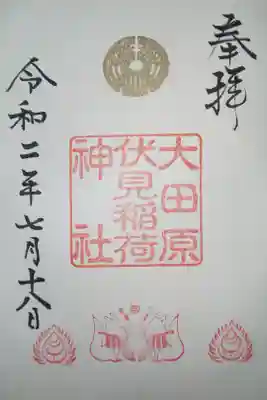 奉拝
大田原
伏見稲荷
神社
令和二年七月十八日